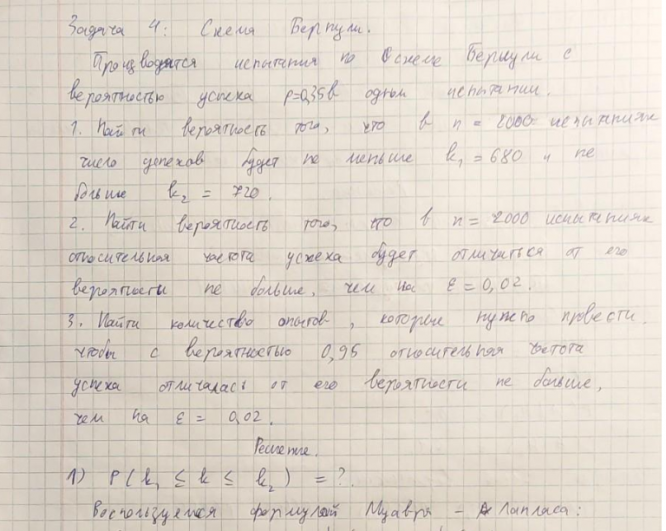 Задача 4: Схема Бернули.
Производятся испытания по схеме Бернули с
вероятностью успеха p=0,35 в одном испытании.
1. Найти вероятность того, что в n = 2000 испытаниях
число успехов будет не меньше k₁ = 680 и не
больше k₂ = 720.
2. Найти вероятность того, что в n = 2000 испытаниях
относительная частота успеха будет отличаться от его
вероятности не больше, чем на ε = 0,02.
3. Найти количество опытов, которые нужно провести
чтобы с вероятностью 0,95 относительная частота
успеха отличалась от его вероятности не больше,
чем на ε = 0,02.
Решение.
1) P(k₁ ≤ k ≤ k₂) = ?.
Воспользуемся формулой Муавра - Лапласа: